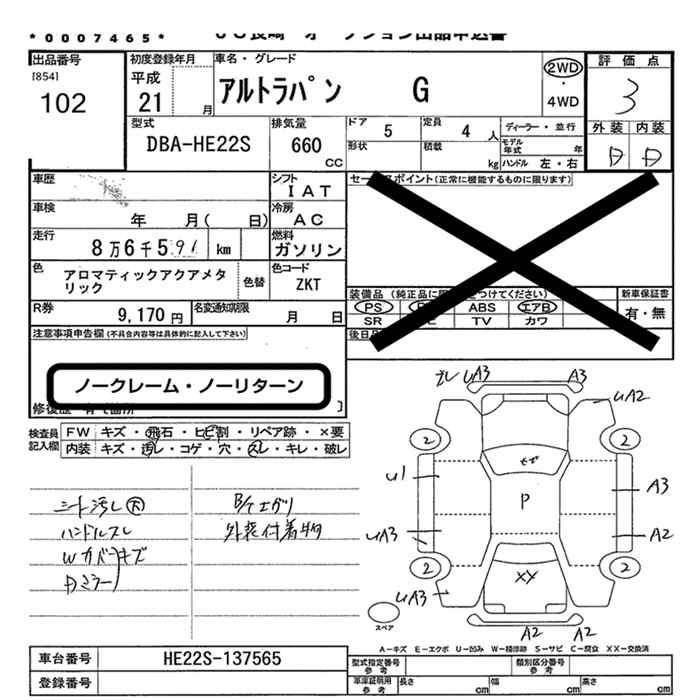 *0007465*
出品番号
[854]
102
初度登録年月
平成
21 月
車名・グレード
アルトラパン G
2WD
・
4WD
評価点
3
外装 内装
D D
型式
DBA-HE22S
排気量
660
CC
ドア 5
定員 4 人
ディーラー・並行
形状
積載 kg
モデル年式 年
ハンドル 左・右
車歴
シフト
IAT
車検
年 月( 日)
冷房
AC
走行
8万6千591 km
燃料
ガソリン
色
アロマティックアクアメタリック
色替
色コード
ZKT
R券
9,170円
名変通知期限
月 日
(正常に機能するものに限ります)
装備品 (純正品に
つけてください)
新車保証書
有・無
PS
ABS
エアB
SR
TV
カワ
後日
注意事項申告欄(不具合内容等は具体的に記入して下さい)
ノークレーム・ノーリターン
検査員
記入欄
FW キズ・飛石・ヒビ割・リペア跡・×要
内装 キズ・汚レ・コゲ・穴・スレ・キレ・破レ
シート汚レ大
ハンドルスレ
Wカバーキズ
Dミラー
B/Tエグリ
外装付着物
UA3
A3
UA2
2
2
U1
P
A3
UA3
A2
2
2
XX
UA3
スペア
A2
A2
A-キズ E-エクボ U-凹み W-補修跡 S-サビ C-腐食 XX-交換済
車台番号
HE22S-137565
登録番号
型式指定番号
参考
類別区分番号
参考
車庫証明用
参考
長さ cm
幅 cm
高さ cm